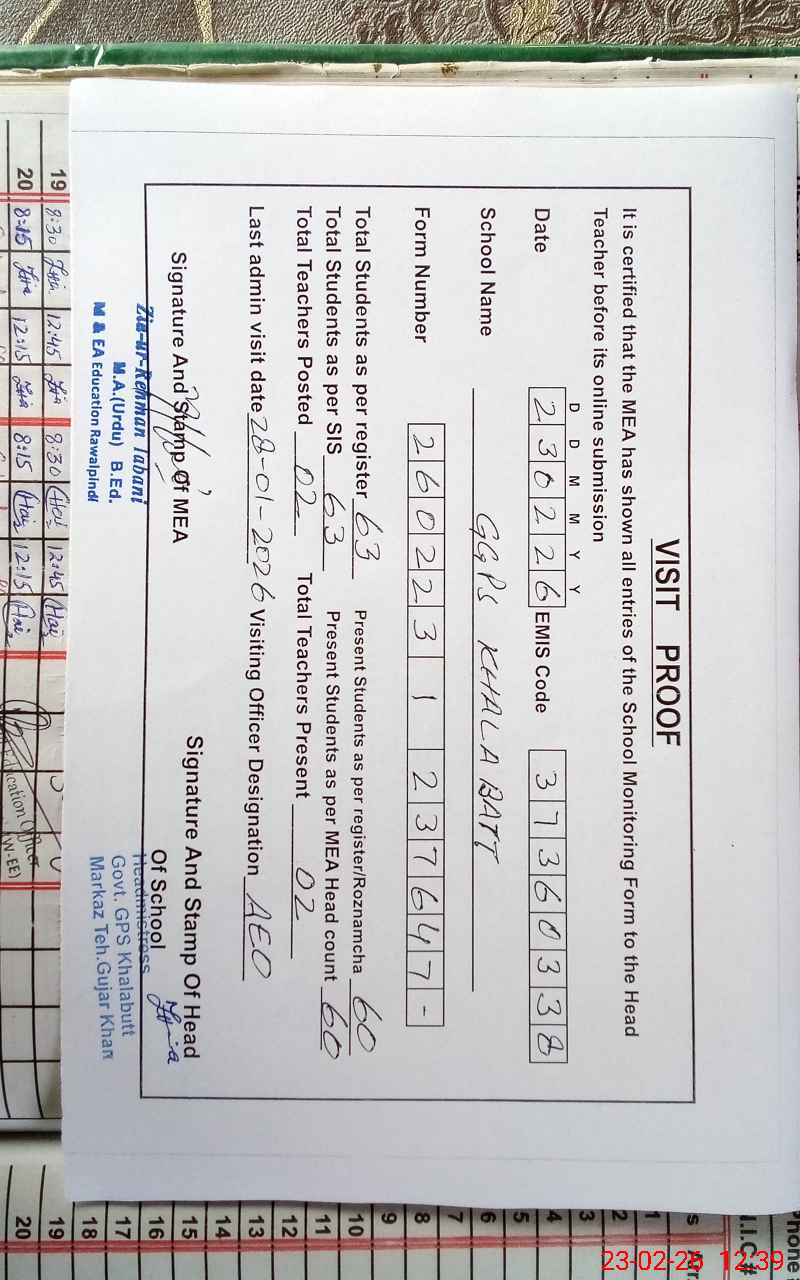 VISIT PROOF
It is certified that the MEA has shown all entries of the School Monitoring Form to the Head
Teacher before its online submission
D D M M Y Y
Date 230226 EMIS Code 37360338
School Name GGPS KHALABATT
Form Number 2602231237647-
Total Students as per register 63 Present Students as per register/Roznamcha 60
Total Students as per SIS 63 Present Students as per MEA Head count 60
Total Teachers Posted 02 Total Teachers Present 02
Last admin visit date 28-01-2026 Visiting Officer Designation AEO
Signature And Stamp Of MEA
Signature And Stamp Of Head
Of School
Zia-ur-Rehman Tabani
M.A.(Urdu) B.Ed.
M & EA Education Rawalpindi
Headmistress
Govt. GPS Khalabutt
Markaz Teh.Gujar Khan
19 8:30 12:45 8:30 12:45
20 8:15 12:15 8:15 12:15
Education Officer
(W-EE)
1
2
3
4
5
6
7
8
9
10
11
12
13
14
15
16
17
18
19
20
23-02-26 12:39